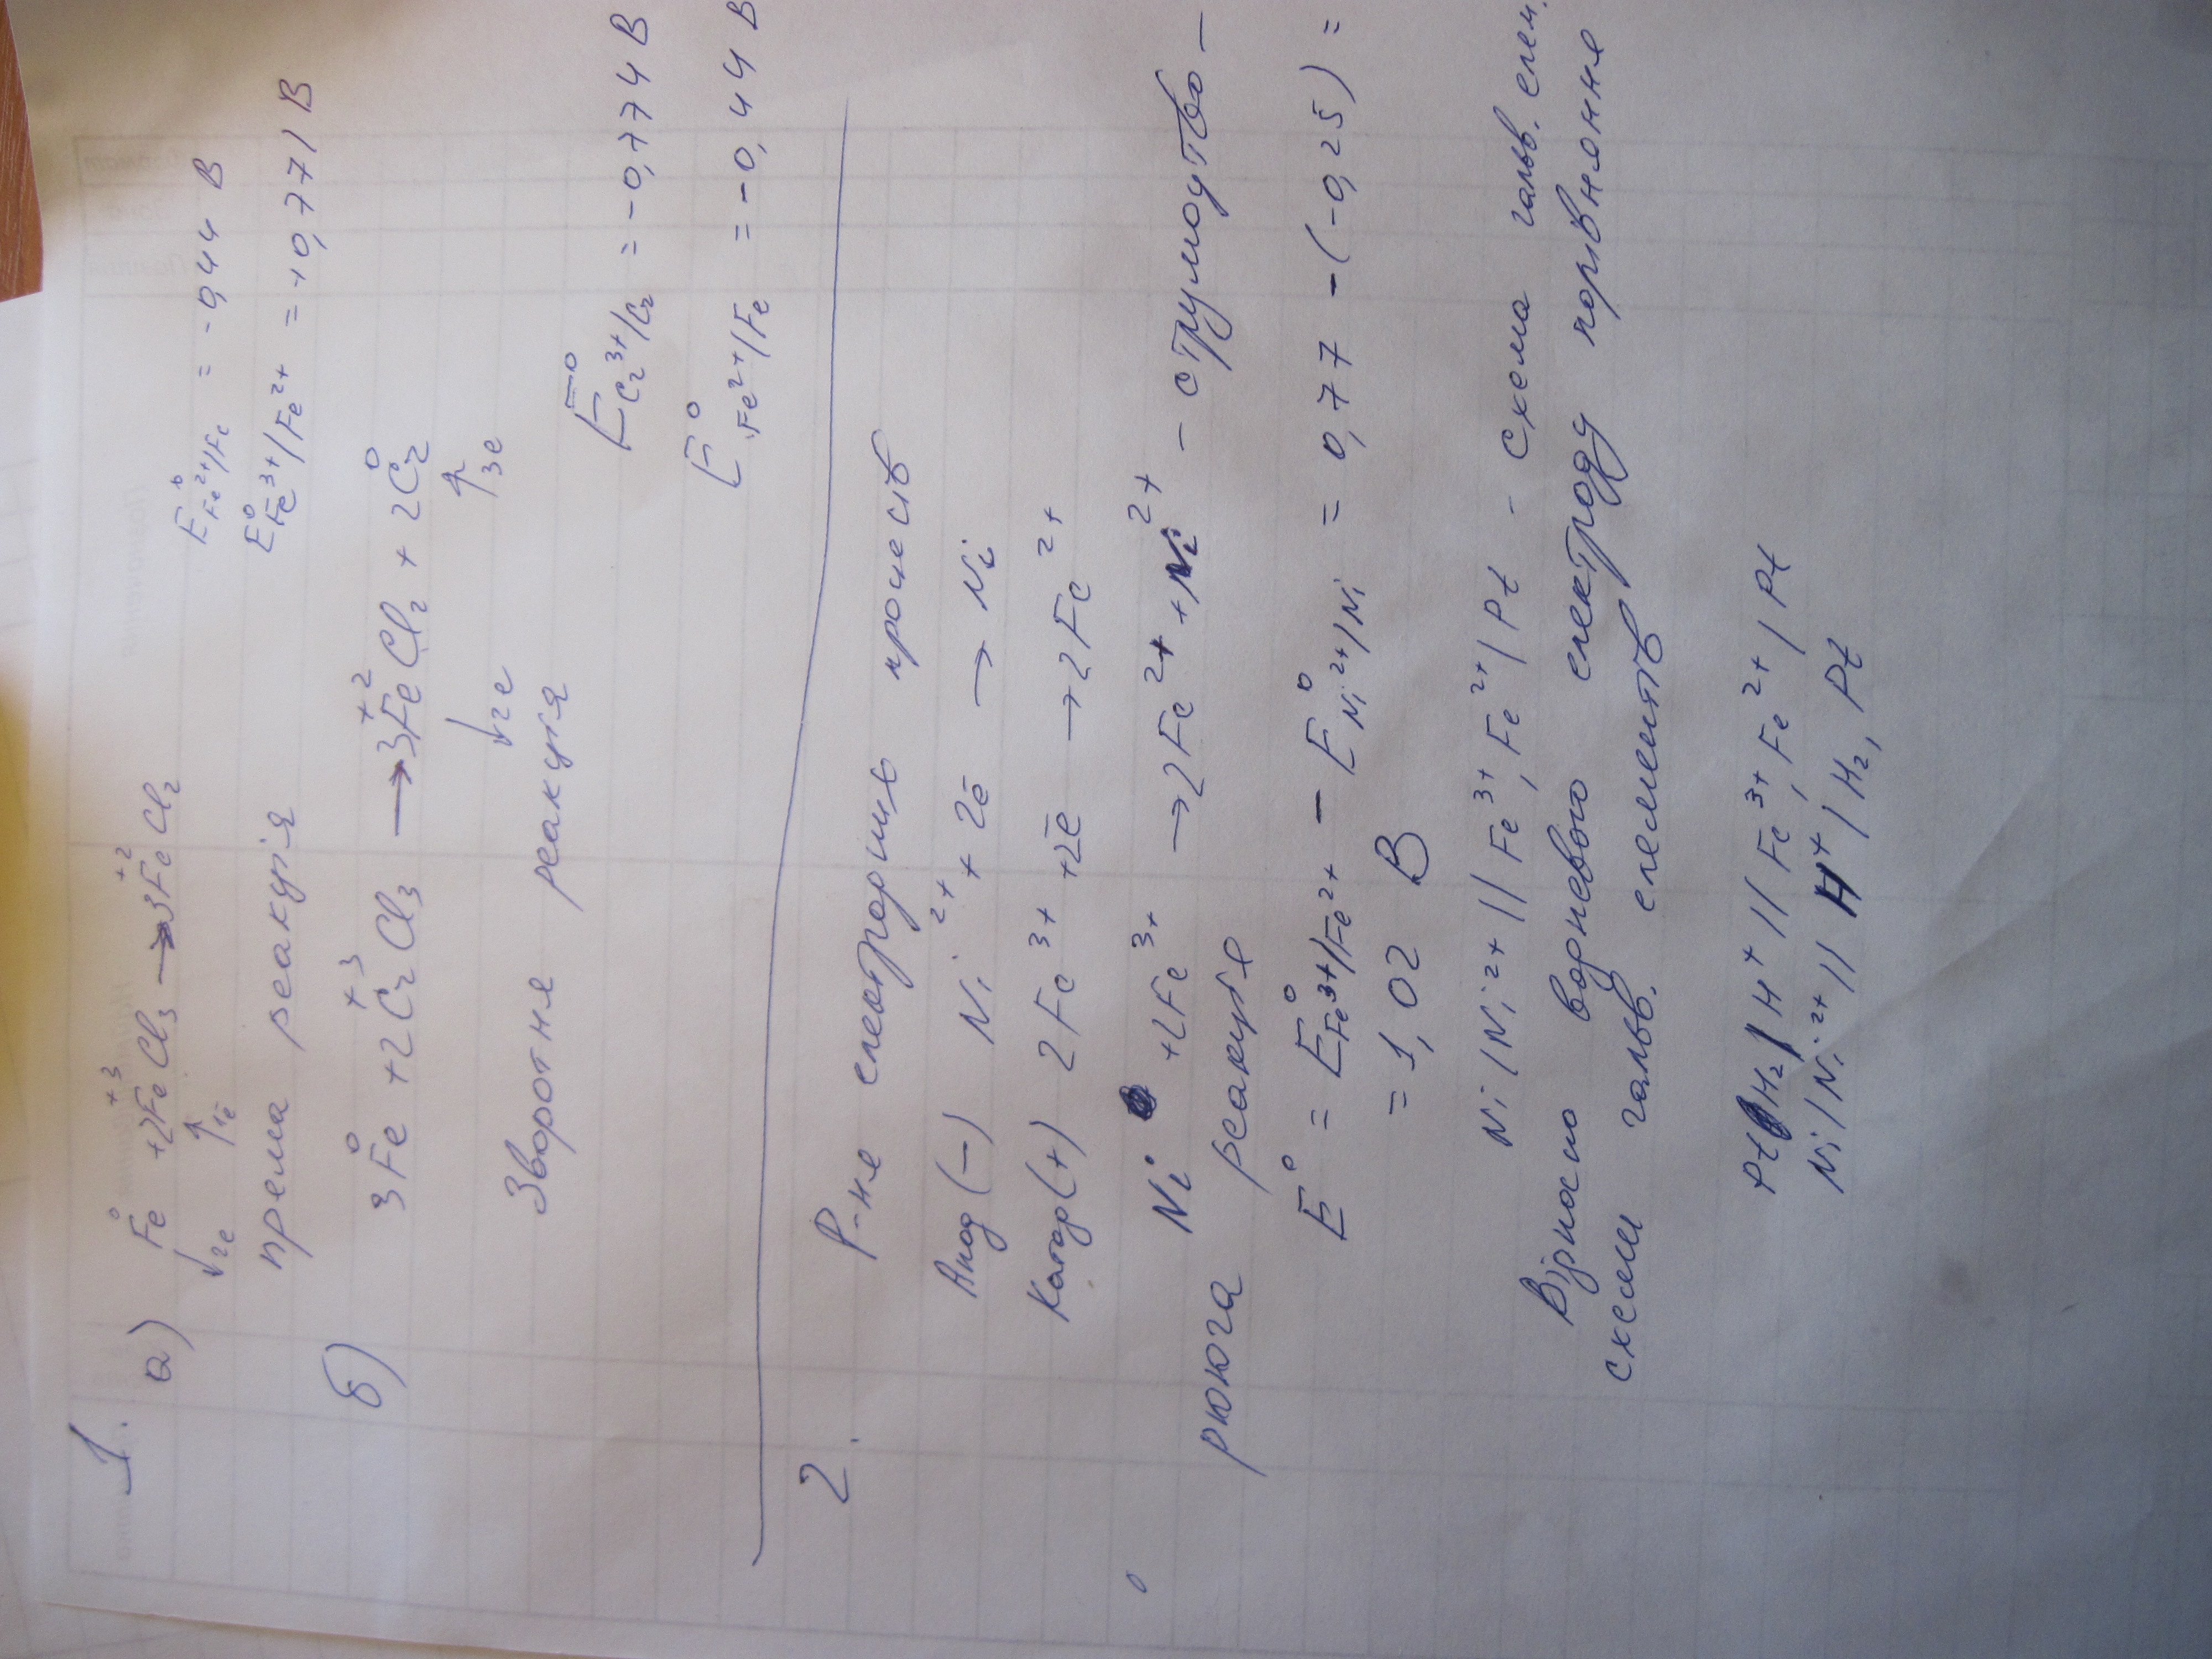 1.
а) Fe⁰ + 2Fe⁺³Cl₃ → 3Fe⁺²Cl₂
↓2е ↑1ē
E⁰Fe²⁺/Fe = -0,44 В
E⁰Fe³⁺/Fe²⁺ = +0,771 В
пряма реакція
б) 3Fe⁰ + 2Cr⁺³Cl₃ → 3Fe⁺²Cl₂ + 2Cr⁰
↓2е ↑3е
Зворотня реакція
E⁰Cr³⁺/Cr = -0,774 В
E⁰Fe²⁺/Fe = -0,44 В
2.
Р-ня електродних процесів
Анод (-) Ni²⁺ + 2ē → Ni
Катод (+) 2Fe³⁺ + 2ē → 2Fe²⁺
Ni + 2Fe³⁺ → 2Fe²⁺ + Ni²⁺ - струмоутво-
рююча реакція
E⁰ = E⁰Fe³⁺/Fe²⁺ - E⁰Ni²⁺/Ni = 0,77 - (-0,25) =
= 1,02 В
Ni | Ni²⁺ || Fe³⁺, Fe²⁺ | Pt - схема гальв. елем.
Відносно водневого електроду порівняння
схеми гальв. елементів
Pt H₂ | H⁺ || Fe³⁺, Fe²⁺ | Pt
Ni | Ni²⁺ || H⁺ | H₂, Pt